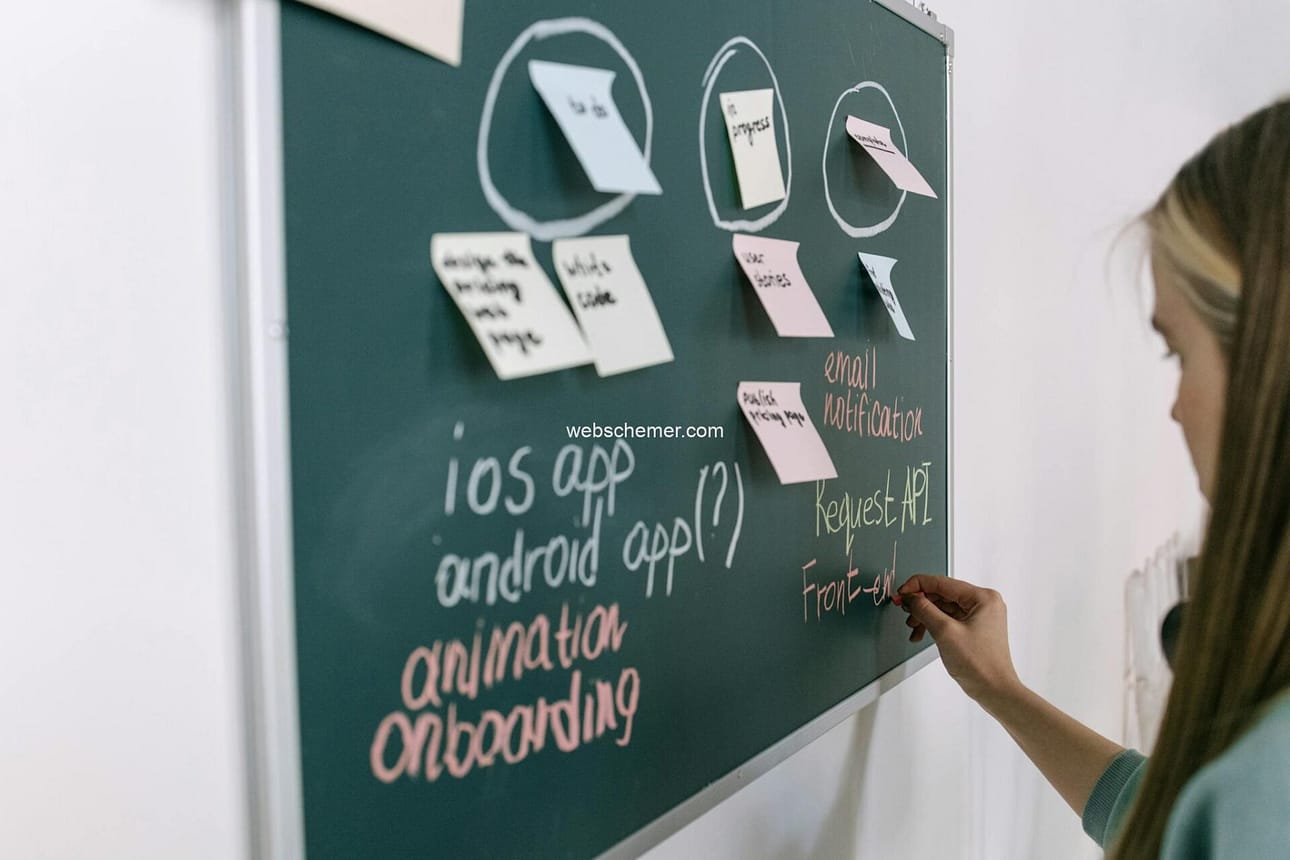 to do
in
progress
design the
pricing
web
page
write
code
user
stories
publish
pricing page
webschemer.com
ios app
android app(?)
animation
onboarding
email
notification
Request API
Front-end